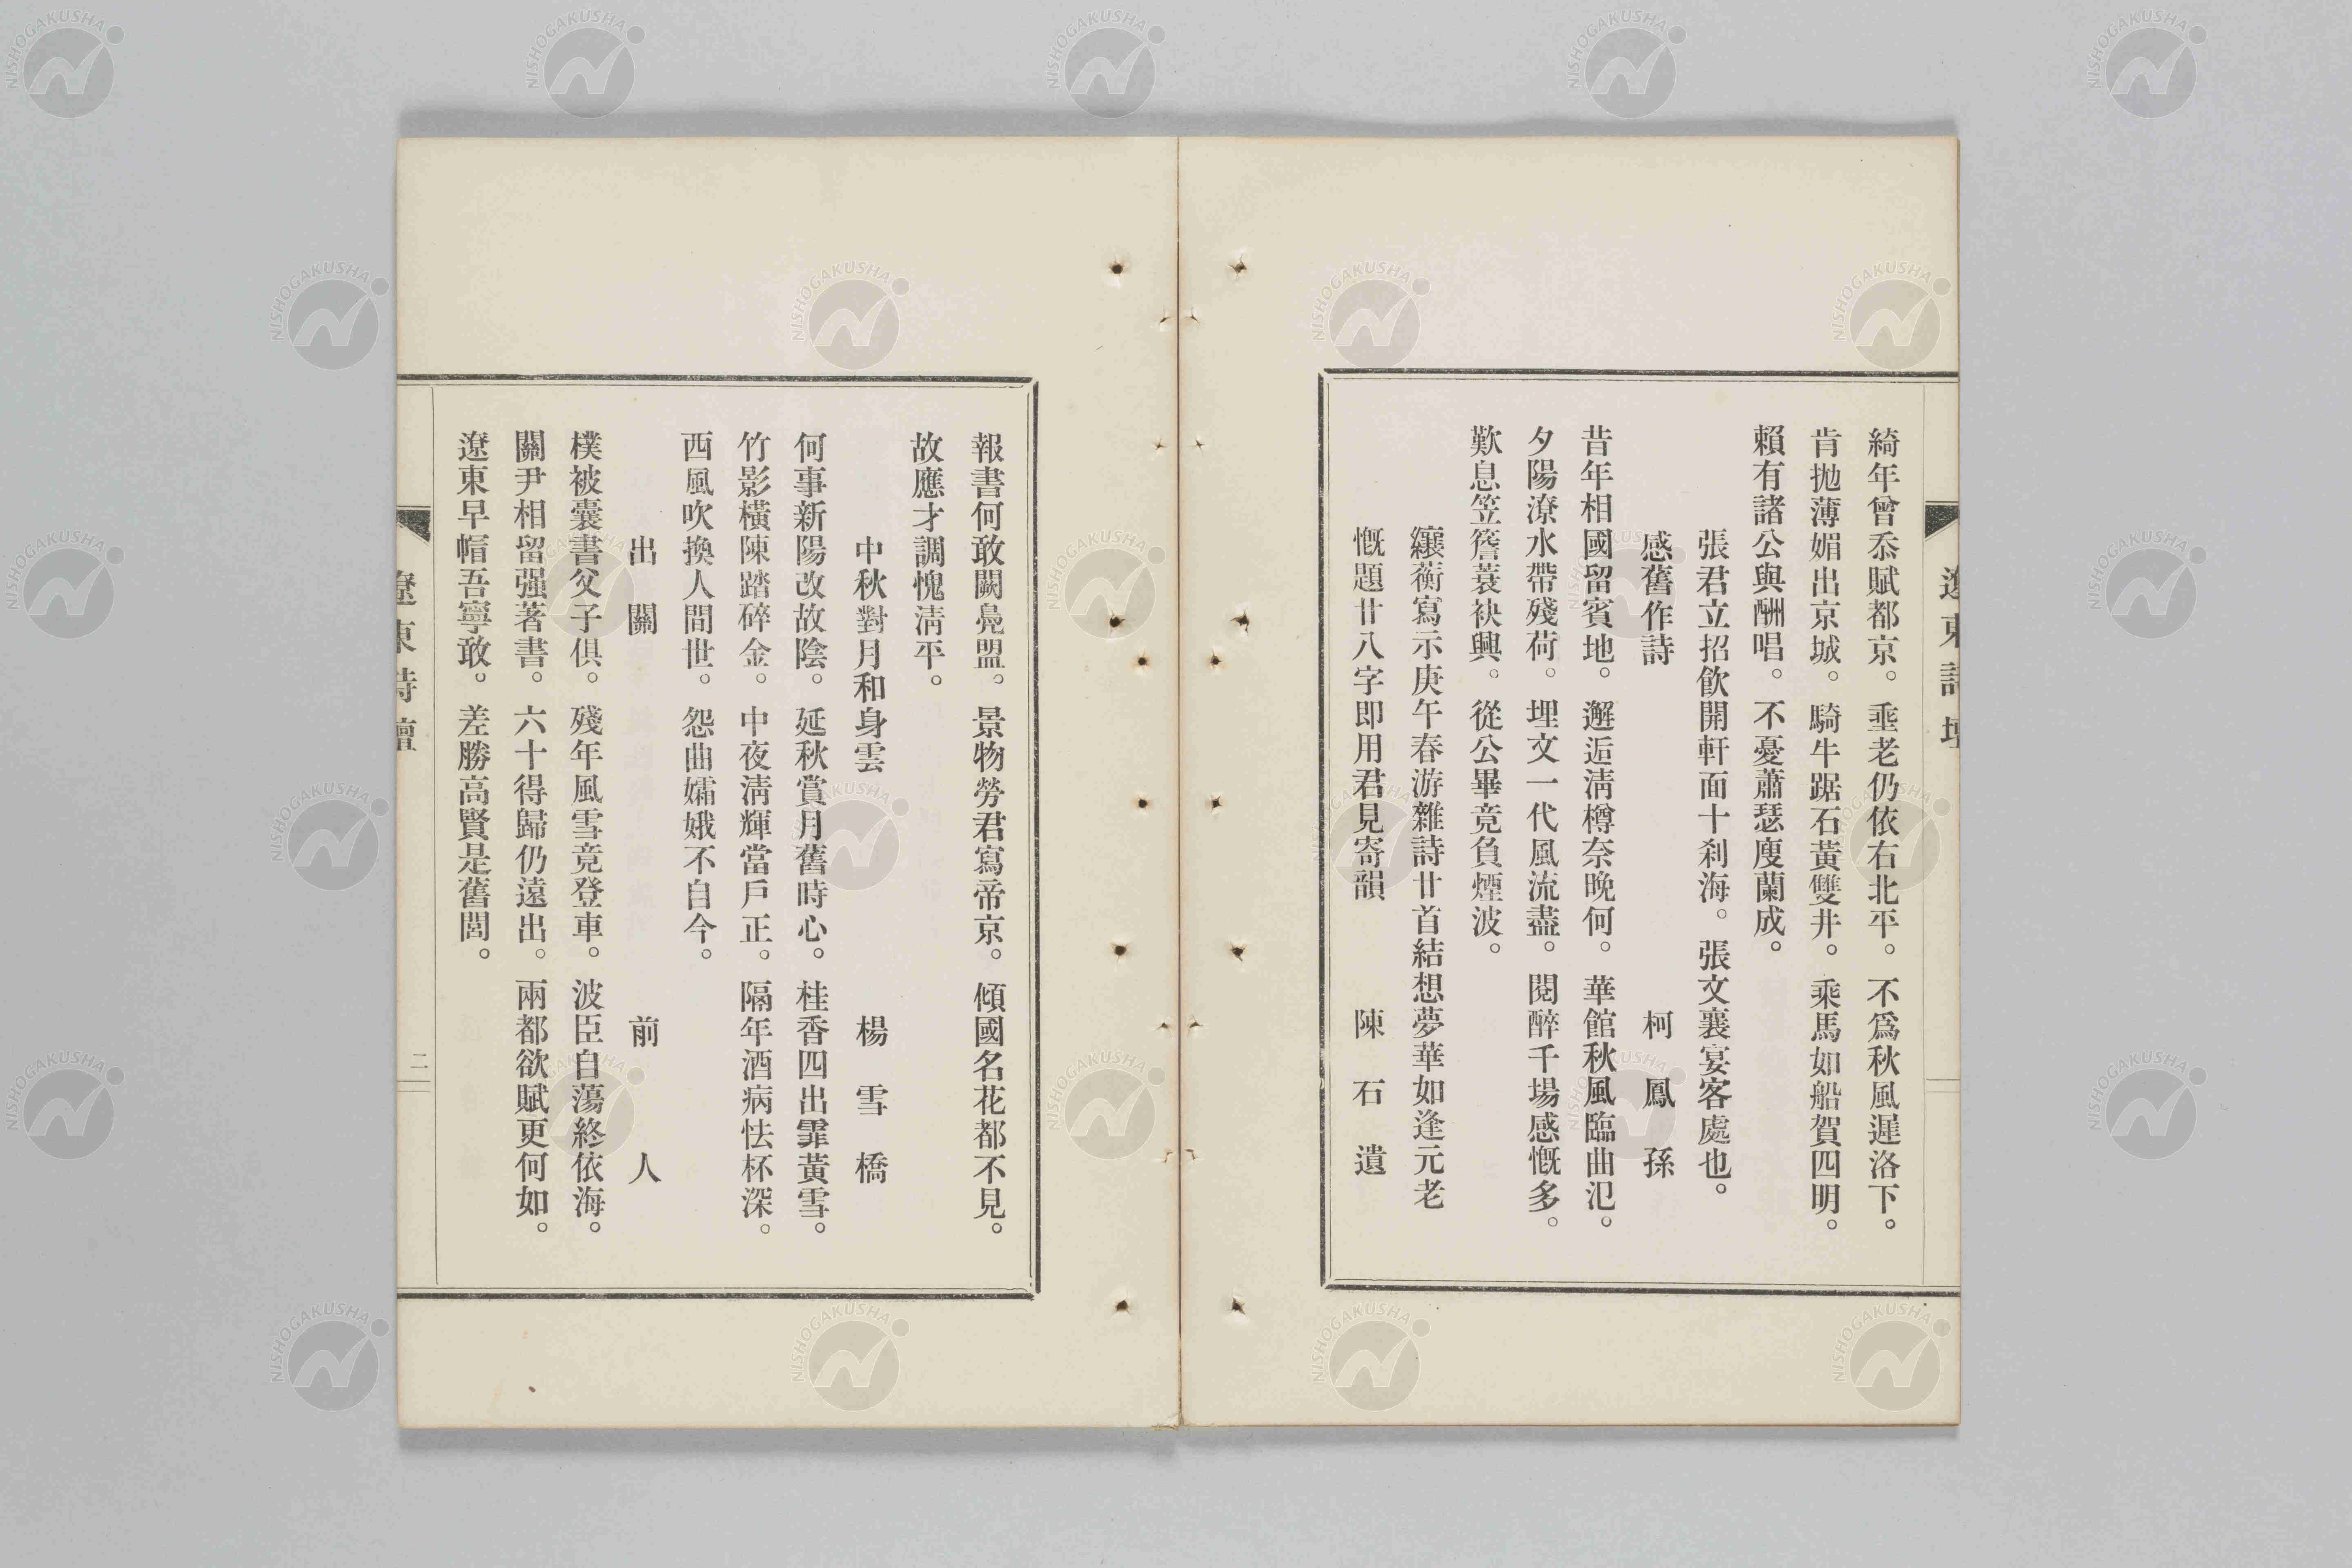 遼東詩壇
綺年曾忝賦都京。埀老仍依右北平。不爲秋風遲洛下。
肯拋薄媚出京城。騎牛踞石黃雙井。乘馬如船賀四明。
賴有諸公與酬唱。不憂蕭瑟廋蘭成。
張君立招飲開軒面十刹海。張文襄宴客處也。
感舊作詩 柯鳳孫
昔年相國留賓地。邂逅淸樽奈晚何。華館秋風臨曲汜。
夕陽潦水帶殘荷。埋文一代風流盡。閱醉千場感慨多。
歎息笠簷蓑袂興。從公畢竟負煙波。
纕蘅寫示庚午春游雜詩廿首結想夢華如逢元老
慨題廿八字即用君見寄韻 陳石遺
報書何敢闕鳧盟。景物勞君寫帝京。傾國名花都不見。
故應才調愧淸平。
中秋對月和身雲 楊雪橋
何事新陽改故陰。延秋賞月舊時心。桂香四出霏黃雪。
竹影橫陳踏碎金。中夜淸輝當戶正。隔年酒病怯杯深。
西風吹換人間世。怨曲孀娥不自今。
出關 前人
樸被囊書父子俱。殘年風雪竟登車。波臣自蕩終依海。
關尹相留强著書。六十得歸仍遠出。兩都欲賦更何如。
遼東早帽吾寧敢。差勝高賢是舊閭。
遼東詩壇
二
NISHOGAKUSHA